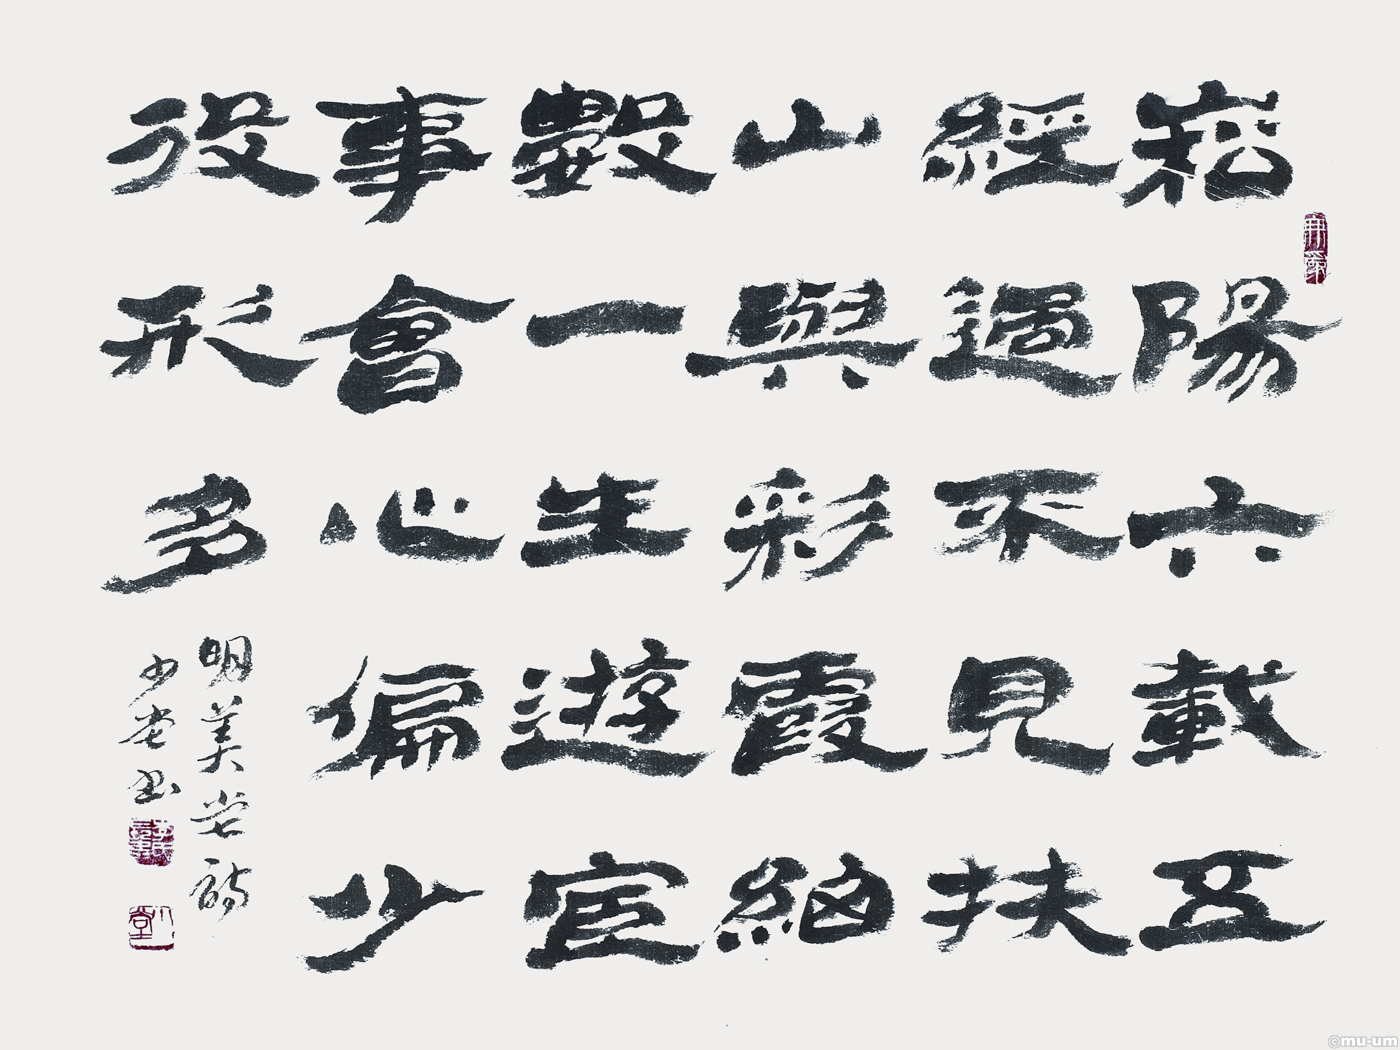 崧陽六載五
經過不見扶
山與彩霞絕
數一生遊宦
事會心偏少
役形多
明美堂詩
少堂書
©mu-um